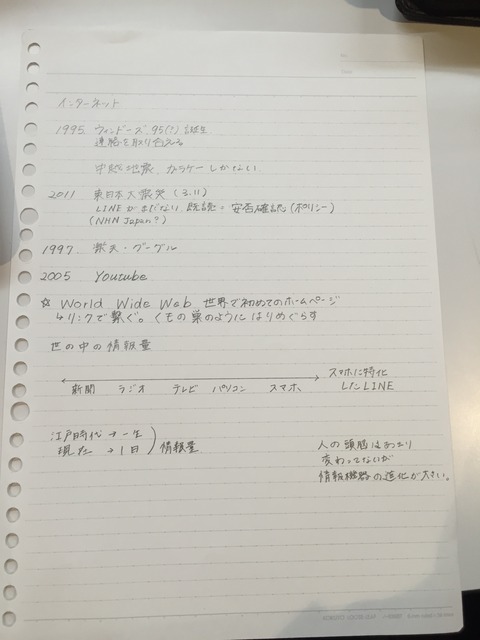 インターネット
1995 ウィンドーズ95(?)誕生
連絡を取り合える
中越地震 ガラケーしかない
2011 東日本大震災 (3.11)
LINEがまだない 既読=安否確認(ポリシー)
(NHN Japan?)
1997 楽天・グーグル
2005 Youtube
☆ World Wide Web 世界で初めてのホームページ
↳リンクで繋ぐ。くもの巣のようにはりめぐらす
世の中の情報量
スマホに特化
新聞 ラジオ テレビ パソコン スマホ したLINE
江戸時代 → 一生
現在 → 1日 情報量
人の頭脳はあまり
変わってないが
情報機器の進化が大きい。